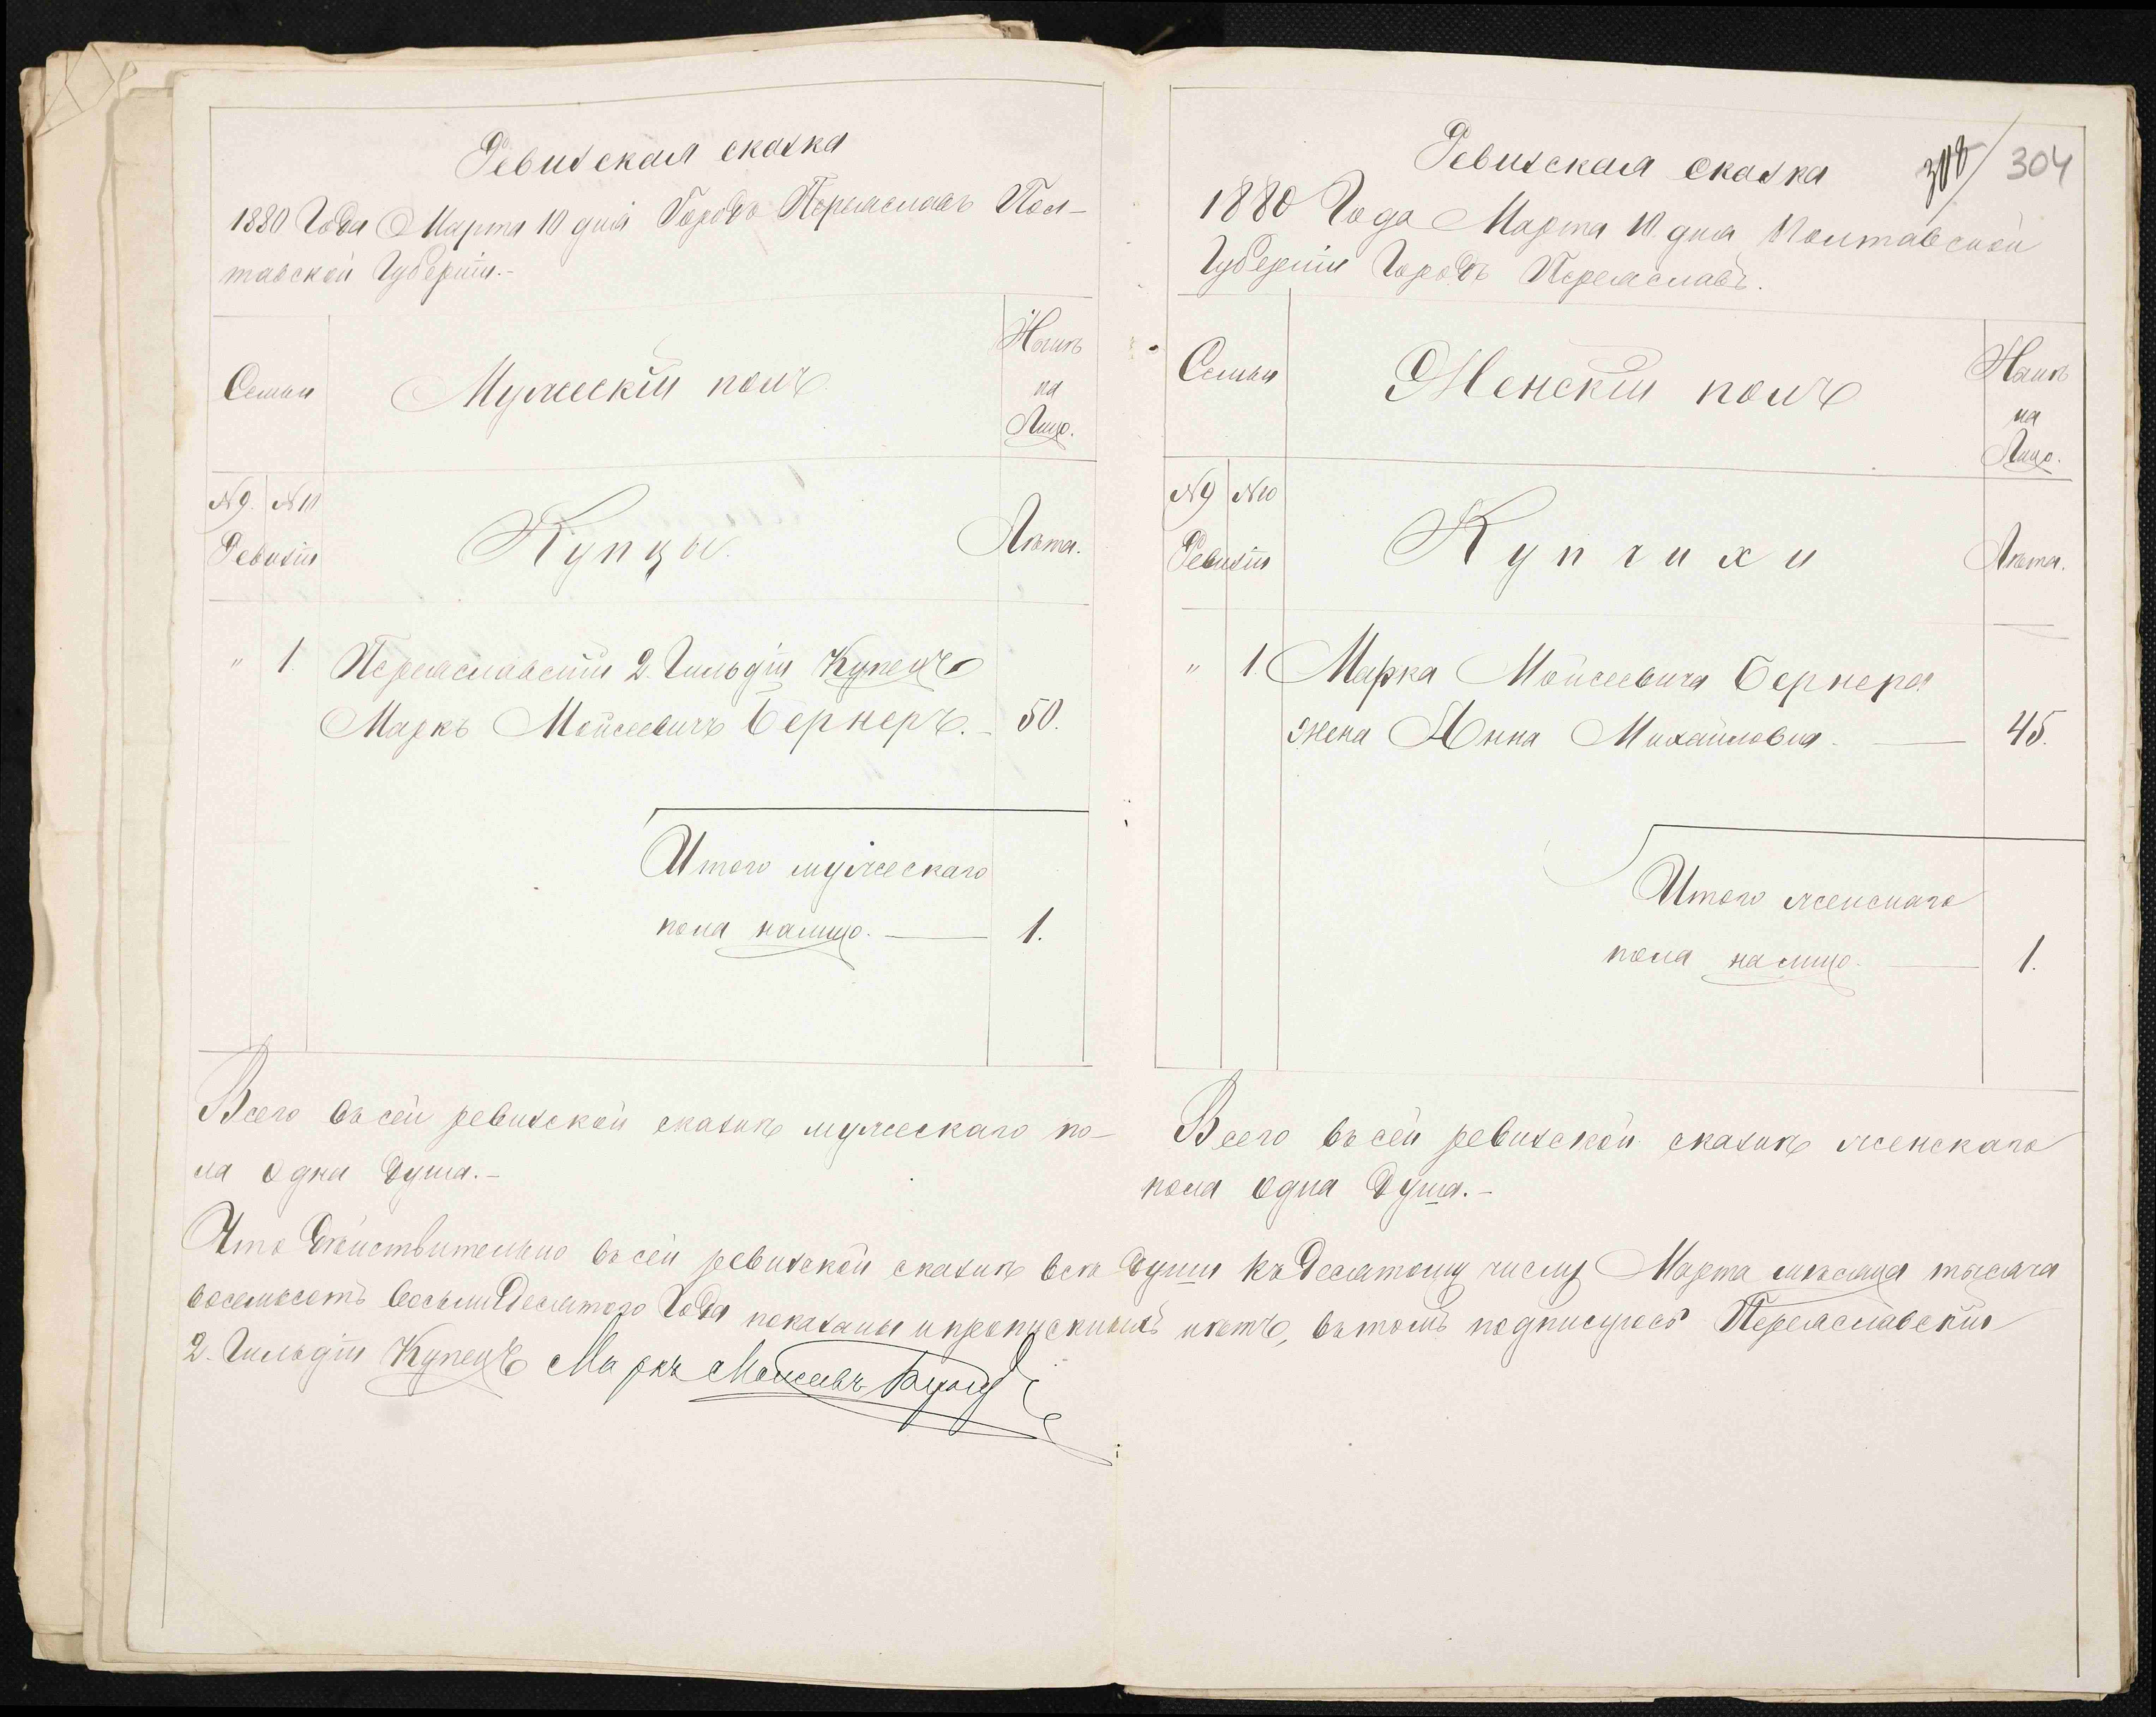 Ревизская сказка
1880 Года Марта 10 дня Городъ Переяславъ Пол-
тавской Губерніи.-
Семьи
Мужескій полъ
Нынѣ
на
Лицо.
№ 9. № 10
Ревизіи
Купцы.
Лѣта.
" 1. Переяславскій 2. Гильдіи Купецъ
Маркъ Мойсеевичъ Бернеръ. - 50.
Итого мужескаго
пола налицо. — 1.
Всего въ сей ревизской сказкѣ мужескаго по-
ла одна душа.-
Ревизская сказка
308 304
1880 Года Марта 10 дня Полтавской
Губерніи Городъ Переяславъ.
Семьи
Женскій полъ
на
Лицо.
№ 9 № 10
Ревизіи
Купчихи
Лѣта.
" 1 Марка Мойсеевича Бернера
жена Анна Михайловна. — 45.
Итого женскаго
пола налицо. — 1.
Всего въ сей ревизской сказкѣ женскаго
пола одна душа.-
Что дѣйствительно въ сей ревизской сказкѣ всѣ души къ десятому числу Марта мѣсяца тысяча
восемьсотъ восьмидесятого Года показаны и пропускныхъ нѣтъ, въ томъ подписуюсь Переяславскій
2. Гильдіи Купецъ Маркъ Мойсеевъ